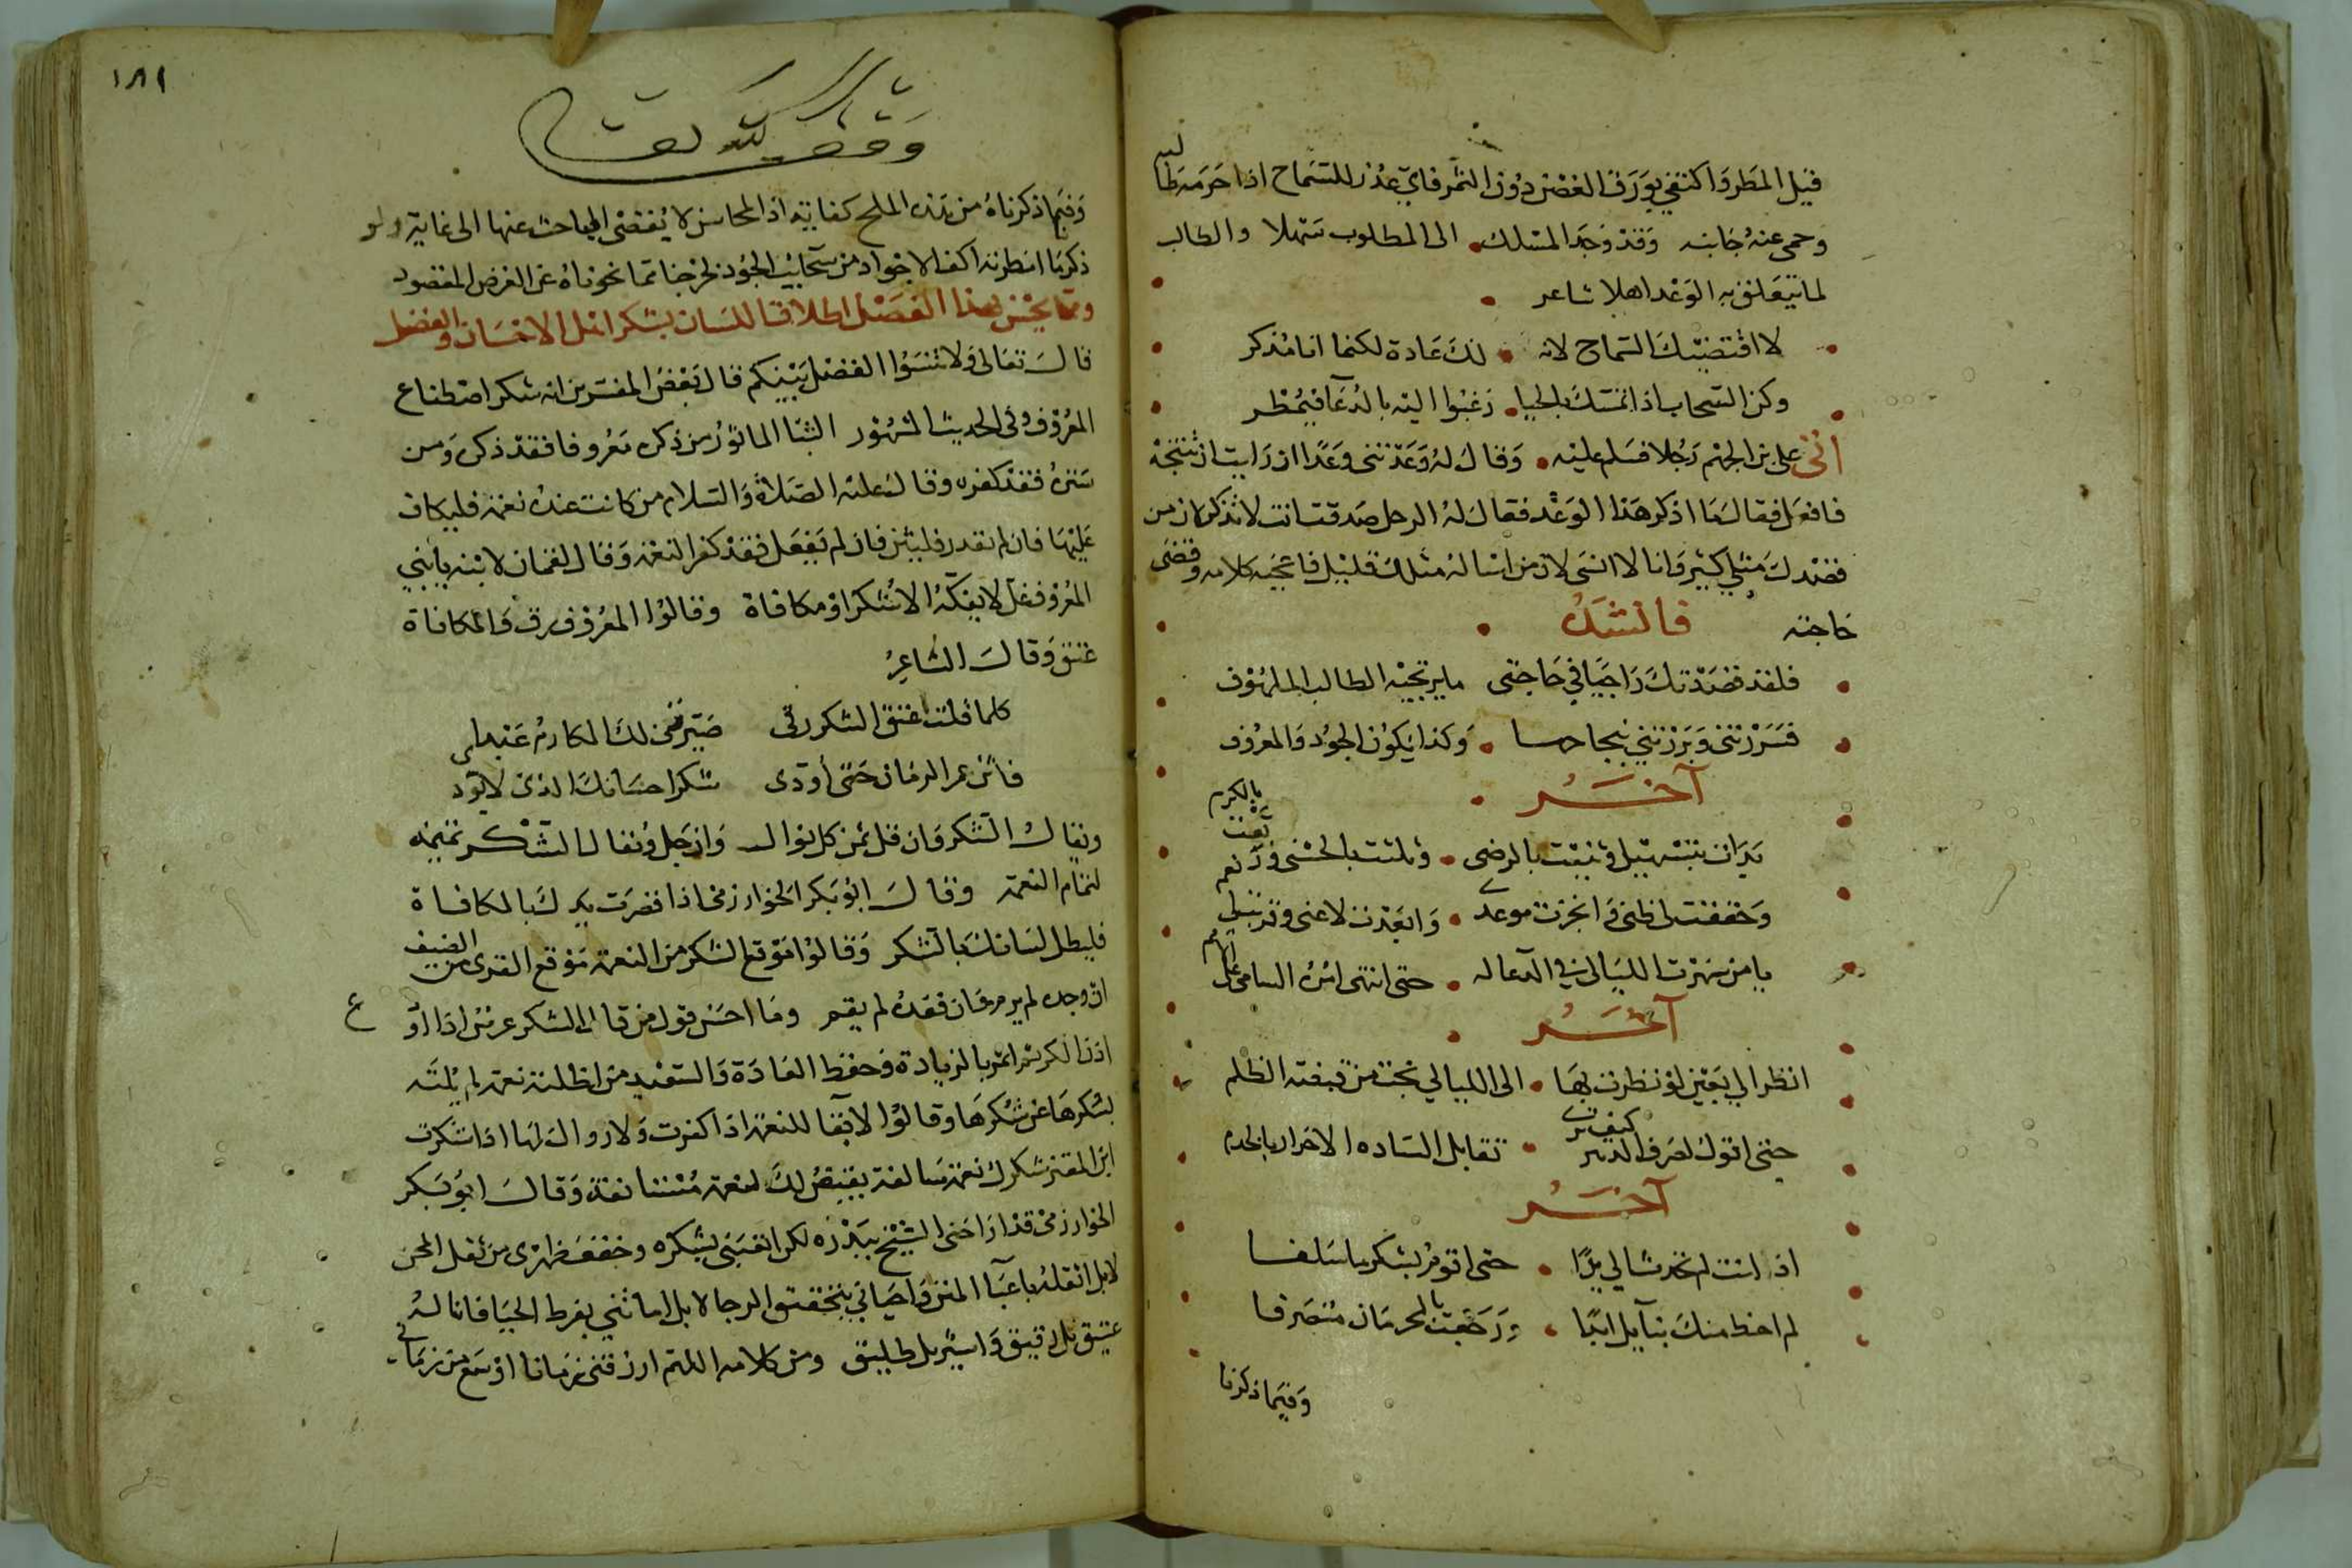 قبل المطر واكتفي بورق الغصن دون الثمر فاي عذر للسماح اذا حرمه طالبه
وحمى عنه جانبه وقد وجد المسلك الى المطلوب سهلا والطالب
لما يتعلق به الوعد اهلا شاعر
لا اقتضيك السماح لانه لك عادة لكنما انا مذكر
وكن السحاب اذا تمسك بالحيا رغبوا اليه بالدعا فيمطر
اتى علي بن الجهم رجلا فسلم عليه وقال له وعدتني وعدا ان رايت ان تنجزه
فافعل فقال ما اذكر هذا الوعد فقال له الرجل صدقت انت لا تذكر لان من
قصدك مثلي كثير وانا لا انسى لان من اساله مثلك قليل فاعجبه كلامه وقضى
حاجته فانشده
فلقد قصدتك راجيا في حاجتي ما يرتجيه الطالب الملهوف
فسررتني وبررتني بنجاحها وكذا يكون الجود والمعروف
آخر
بدات بتسهيل وثنيت بالرضى وثلثت بالحسنى وربعت بالكرم
وحققت لي ظني وانجزت موعدي وابعدت لا عني وقربت لي نعم
يا من سهرت الليالي في الدعا له حتى انتهى امره السامي على الامم
آخر
انظر الي بعين لو نظرت بها الى الليالي نجت من قبضة الظلم
حتى اقول لصرف الدهر كيف ترى تقابل الساده الاحرار بالخدم
آخر
اذا انت لم تحدث الي يدا حتى اقوم بشكر ما سلفا
لم احظ منك بنايل ابدا ورجعت بالحرمان منصرفا
وفيما ذكرنا
١٨٩
وقف لله تعالى
وفيما ذكرناه من هذه الملح كفاية اذ المحاسن لا يفضى المباحث عنها الى غاية ولو
ذكرنا ما امطرته اكف الاجواد من سحائب الجود لخرجنا عما نحوناه عن الغرض المقصود
ومما يحسن بهذا الفصل اطلاقا للسان بشكر اهل الاحسان والفضل
قال تعالى ولا تنسوا الفضل بينكم قال بعض المفسرين انه شكر اصطناع
المعروف وفي الحديث المشهور الثنا الماثور من ذكر معروفا فقد ذكره ومن
ستره فقد كفره وقال عليه الصلاة والسلام من كانت عنده نعمة فليكاف
عليها فان لم يقدر فليثن فان لم يفعل فقد كفر النعمة وقال لقمان لابنه يا بني
المعروف غل لا يفكه الا شكر او مكافاة وقالوا المعروف رق والمكافاة
عتق وقال الشاعر
كلما قلت اعتق الشكر رقي صيرتني لك المكارم عبدا
فاثن عمر الزمان حتى أودى شكر احسانك الذي لا يودى
ويقال الشكر وان قل ثمن كل نوال وان جل ويقال الشكر تميمه
لتمام النعمة وقال ابو بكر الخوارزمي اذا قصرت يدك بالمكافاة
فليطل لسانك بالشكر وقالوا موقع الشكر من النعمة موقع القرى من الضيف
ان وجده لم يرم وان فقده لم يقم وما احسن قول من قال الشكر غرس اذا اودع
اذن الكريم اثمر بالزيادة وحفظ العادة والسعيد من اظلته نعمه لم يلته
بسكرها عن شكرها وقالوا لا بقا للنعمة اذا كفرت ولا زوال لها اذا شكرت
ابن المقفع شكرك نعمة سالفة يقيض لك نعمة مستانفة وقال ابو بكر
الخوارزمي قد اراحني الشيخ ببره لكن اتعبني بشكره وخفف ظهري من ثقل المحن
لا بل اثقله باعبآ المنن واحياني بتحقيق الرجا لا بل اماتني بفرط الحيا فانا له
عتيق بل رقيق واسير بل طليق ومن كلامه اللهم ارزقني زمانا اوسع من زماني